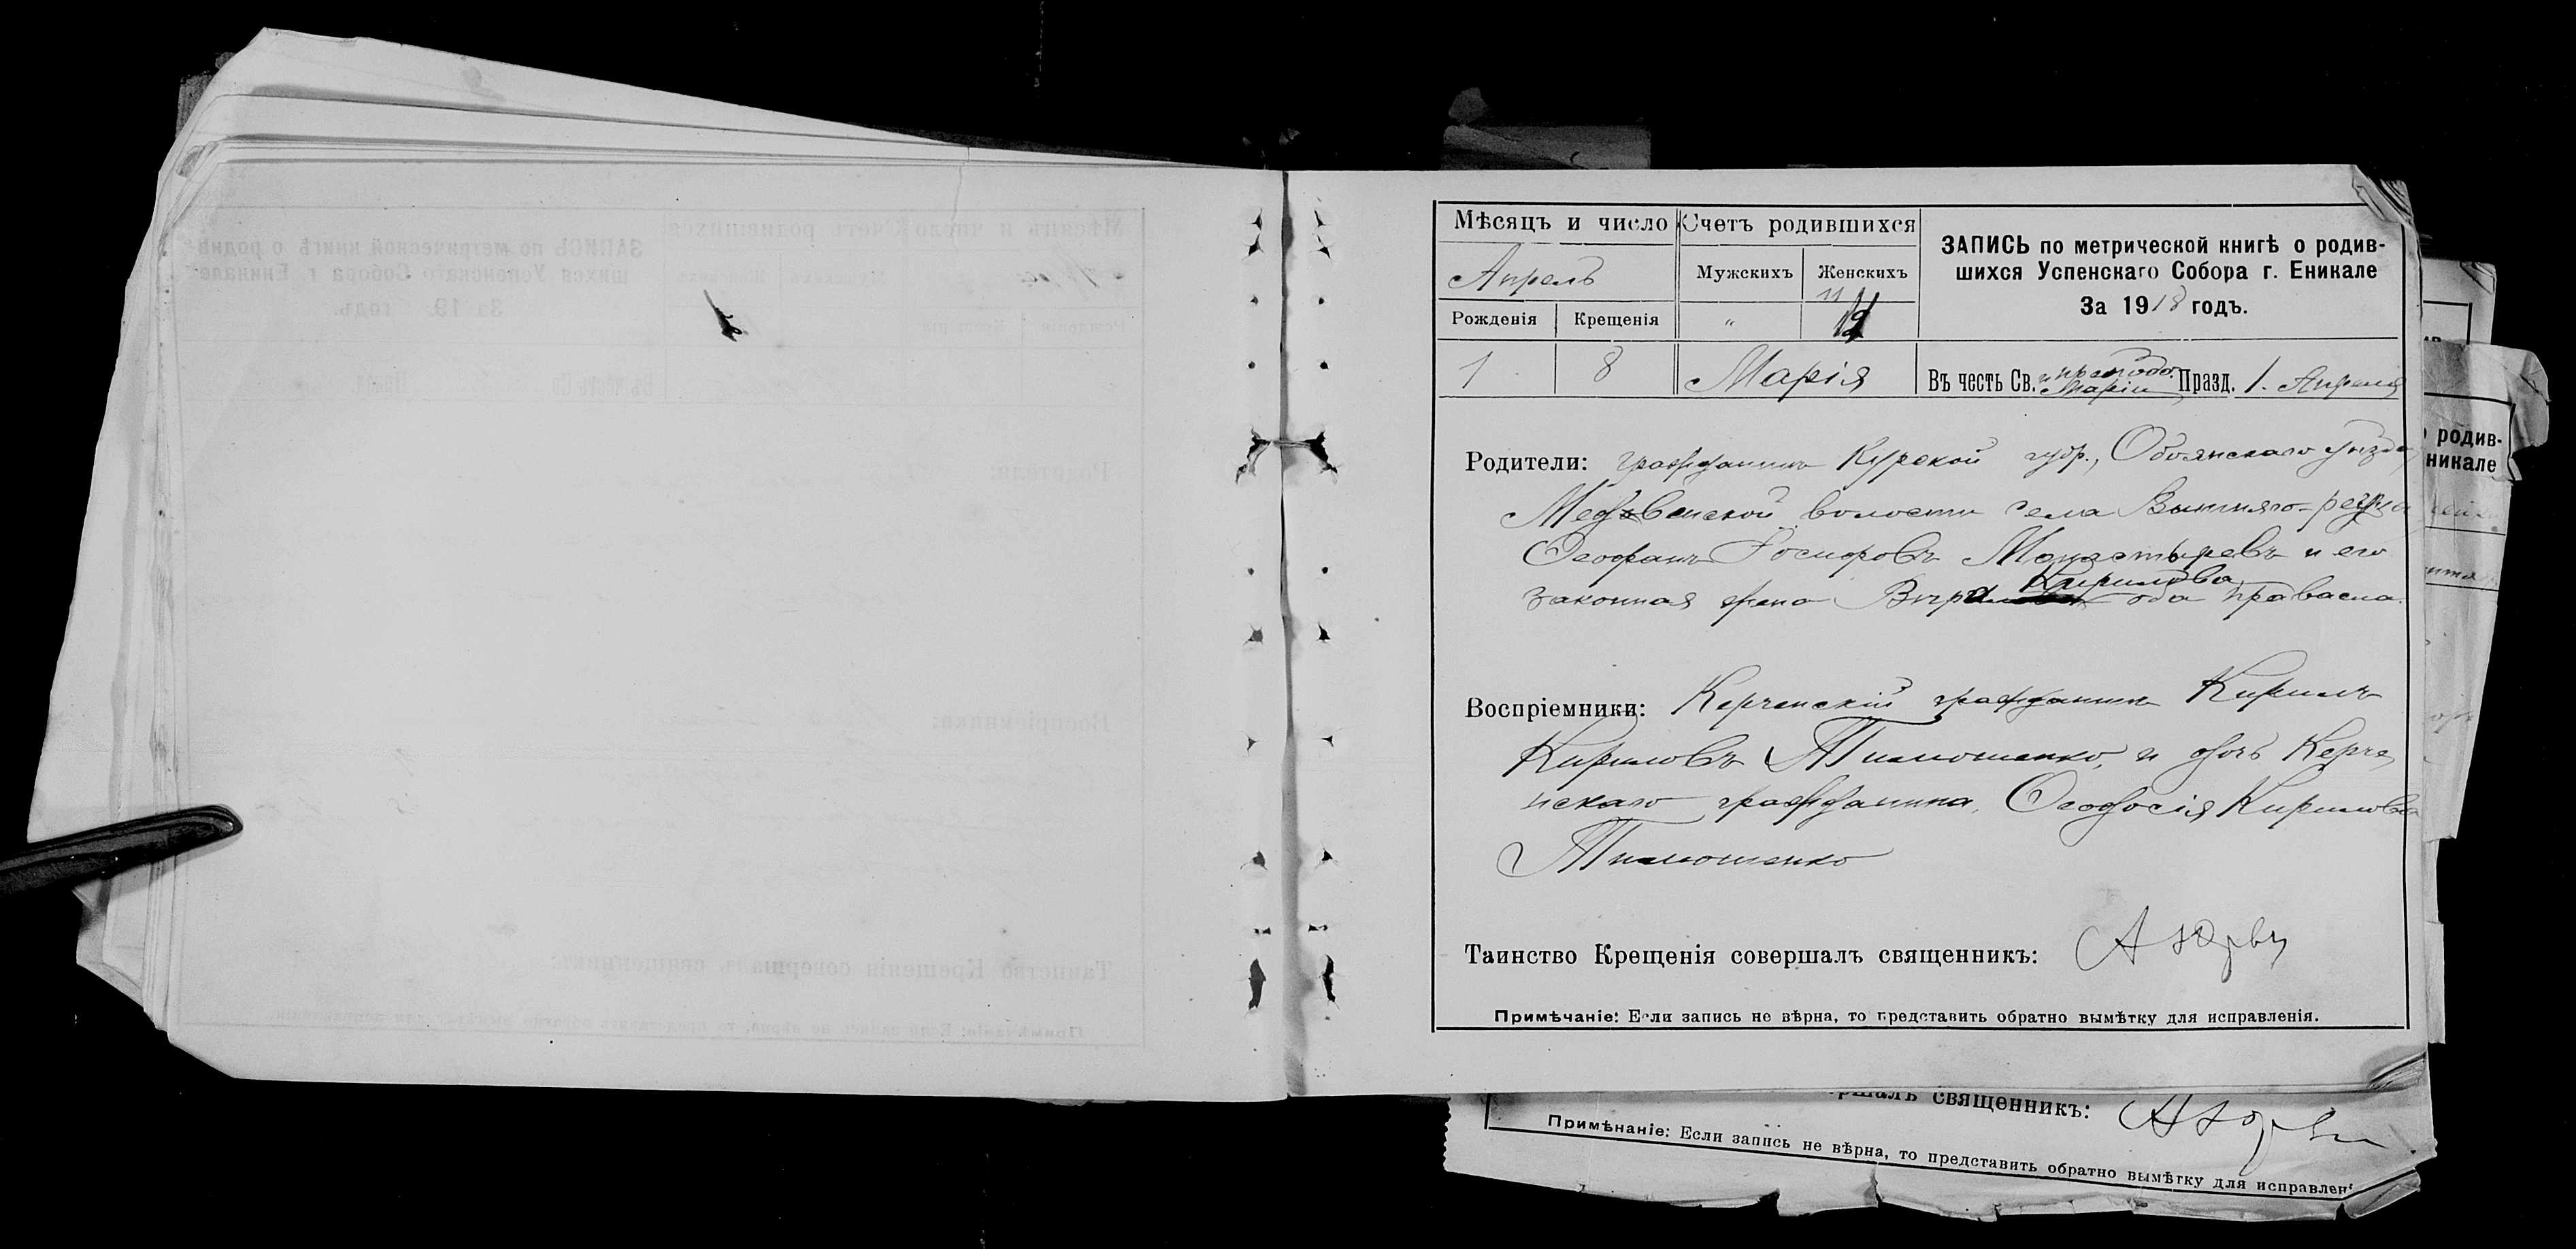 Мѣсяцъ и число
Счетъ родившихся
ЗАПИСЬ по метрической книгѣ о родив-
шихся Успенскаго Собора г. Еникале
За 1918 годъ.
Апрель
Мужскихъ
Женскихъ
11
Рожденія
Крещенія
"
1
8
Марія
Въ честь Св. преподо. Маріи Празд. 1. Апреля
Родители: гражданинъ Курской губ., Обоянскаго уѣзда,
Медвѣнской волости села Вышняго-
Ѳеофанъ Монастыревъ и его
Кирилова
законная жена Вѣра оба правосла.
Воспріемники: Керченскій гражданинъ Кирилъ
Кириловъ Тимошенко, и дочь Керче
нскаго гражданина, Ѳеодосія Кирилова
Тимошенко
Таинство Крещенія совершалъ священникъ:
Примѣчаніе: Если запись не вѣрна, то представить обратно вымѣтку для исправленія.
родив-
никале
священникъ:
Примѣнаніе: Если запись не вѣрна, то представить обратно вымѣтку для исправлен